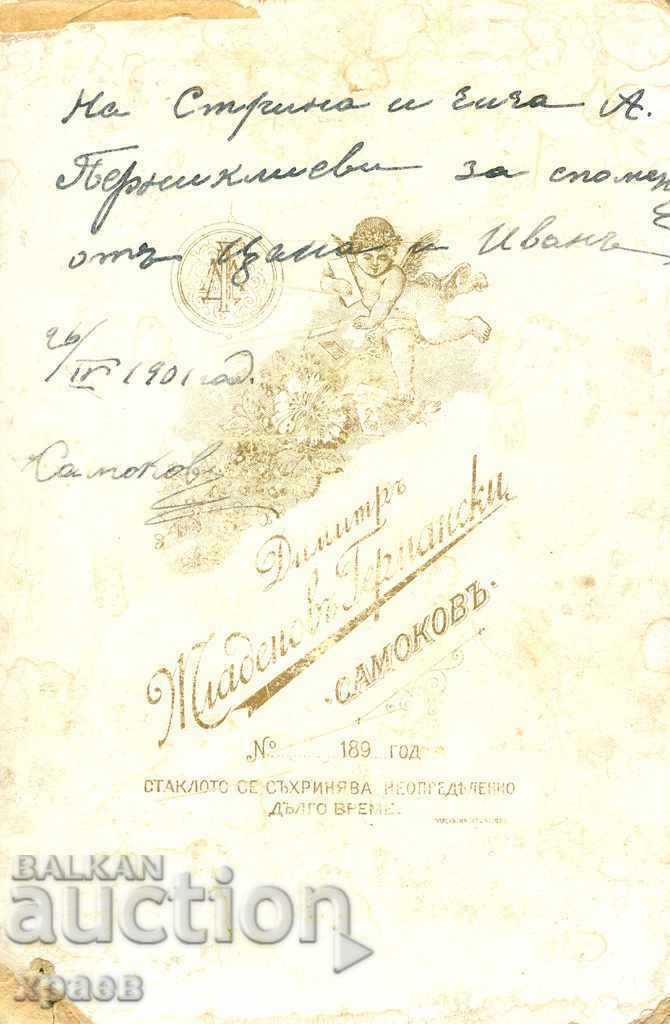 На Стрина и чича А.
Перниклиеви за спомен
отъ Цана и Иванъ
26/IV 1901 год.
Самоковъ
Димитръ
Младеновъ Германски
САМОКОВЪ.
№ 189 год
СТАКЛОТО СЕ СЪХРИНЯВА НЕОПРЕДѢЛЕННО
ДЪЛГО ВРЕМЕ.
BALKAN
auction
храев